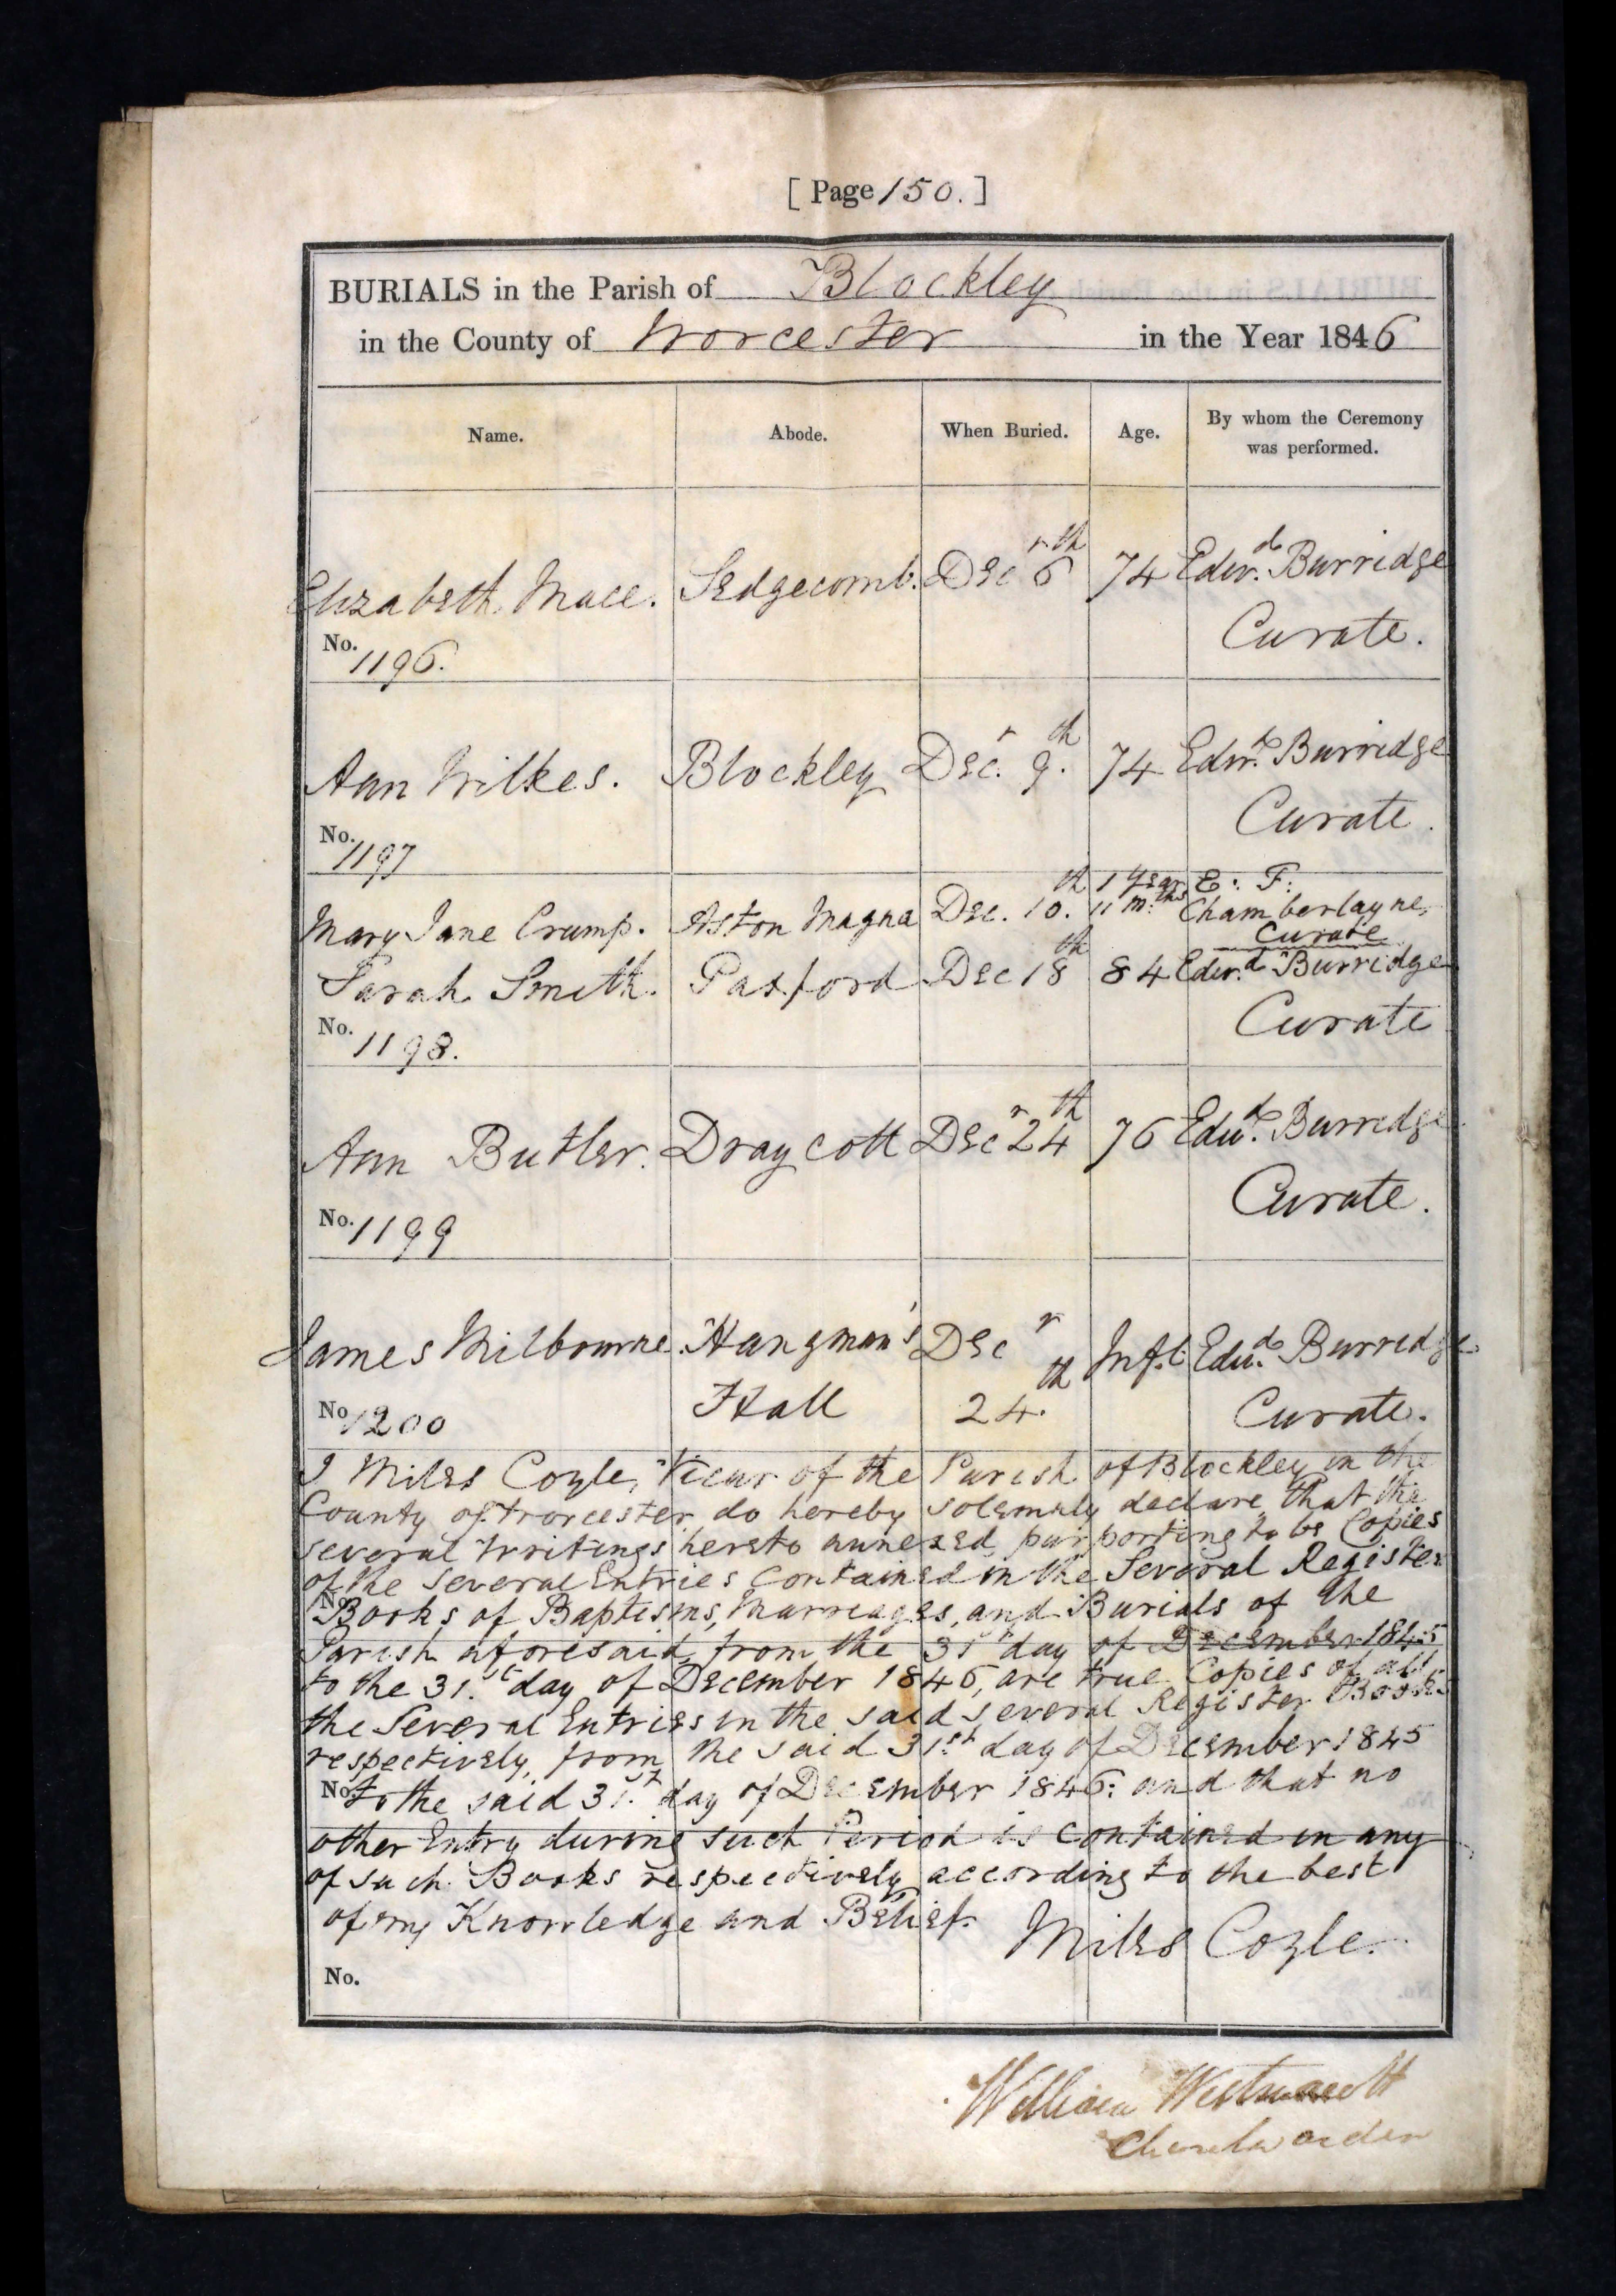 [ Page 150. ]
BURIALS in the Parish of Blockley
in the County of Worcester in the Year 1846
Name. Abode. When Buried. Age. By whom the Ceremony was performed.
Elizabeth Mace. Sedgecomb. Decr 6th 74 Edwd. Burridge
Curate.
No. 1196.
Ann Wilkes. Blockley Decr. 9th. 74 Edwd. Burridge
Curate.
No. 1197
Mary Jane Crump. Aston Magna Dec. 10th. 1 Year 11 Mths. E. F. Chamberlayne, Curate
Sarah Smith. Paxford Dec 18th 84 Edwd. Burridge
Curate
No. 1198.
Ann Butler. Draycott Decr 24th 76 Edwd. Burridge
Curate.
No. 1199
James Milbourne. Hangman's Decr Inft. Edwd. Burridge
Hall 24th. Curate.
No. 1200
I Miles Coyle, Vicar of the Parish of Blockley in the
County of Worcester do hereby solemnly declare, that the
several Writings hereto annexed, purporting to be Copies
of the several Entries contained in the Several Register
No.
Books of Baptisms, Marriages, and Burials of the
Parish aforesaid, from the 31st day of December 1845
to the 31.st day of December 1846, are true Copies of all
the Several Entries in the said several Register Books
respectively, from the said 31.st day of December 1845
No. to the said 31.st day of December 1846: and that no
other Entry during such Period is contained in any
of such Books respectively according to the best
of my Knowledge and Belief.
Miles Coyle.
No.
William
Churchwarden